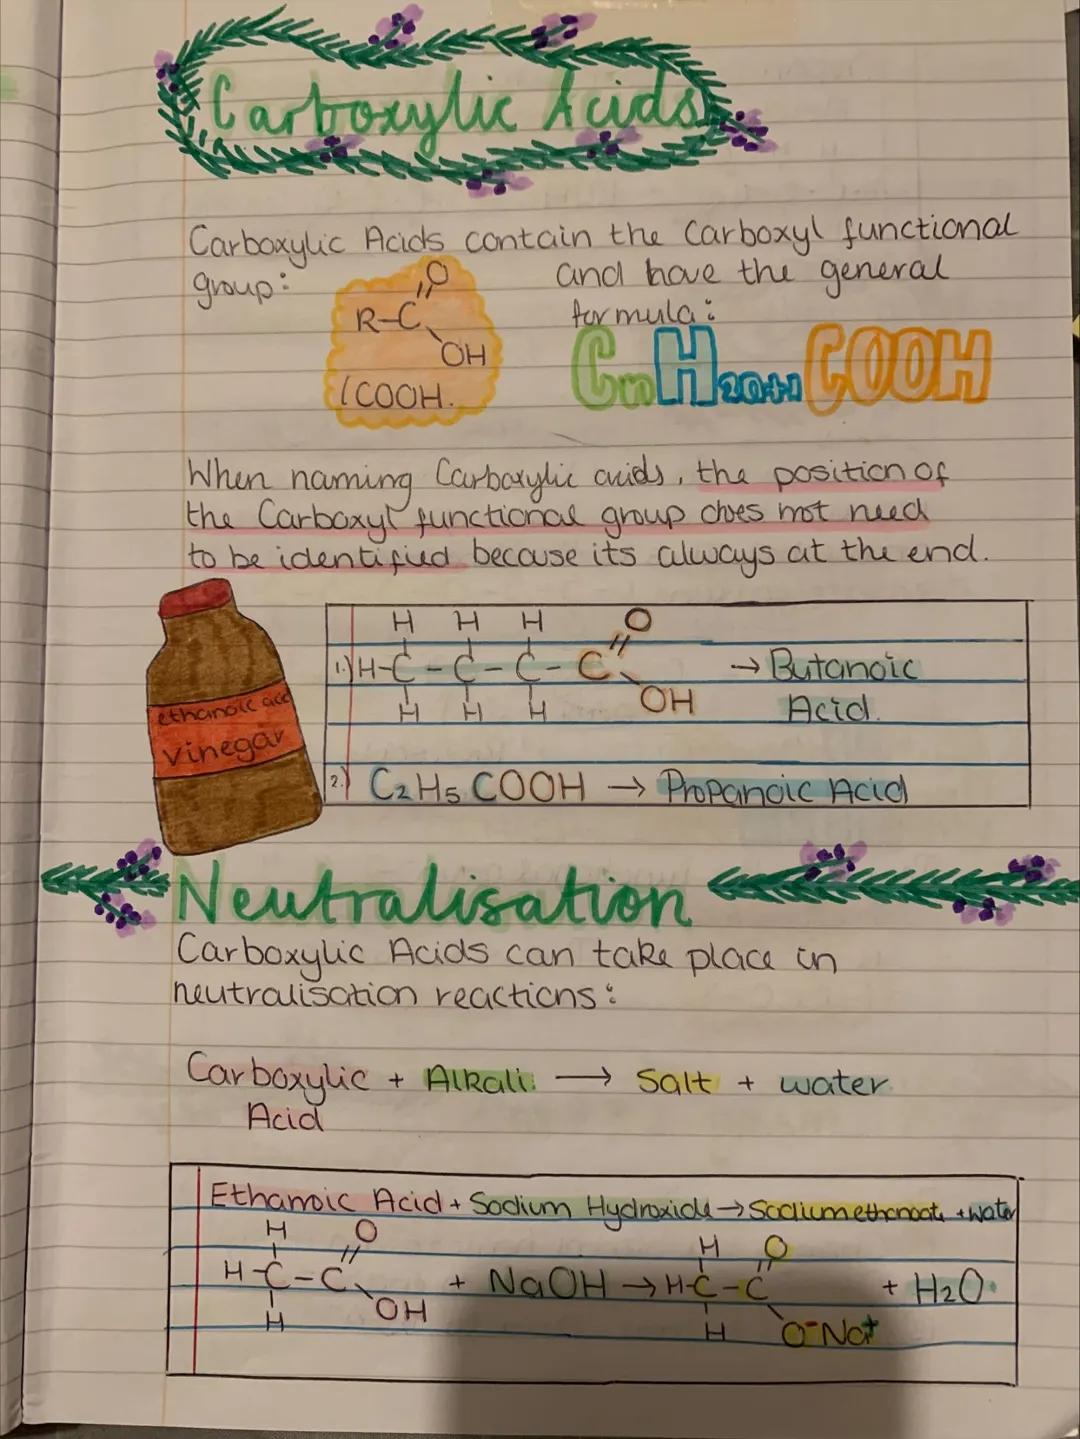 Carboxylic Acids
Carboxylic Acids contain the Carboxyl functional
group:
and have the general
formula:
O
R-C
OH
(COOH.
CnH2n+1COOH
When naming Carboxylic acids, the position of
the Carboxyl functional group does not need
to be identified because its always at the end.
ethanoic aci
Vinegar
H H H O
1.) H-C-C-C-C → Butanoic
H H H OH Acid.
2.) C2H5COOH → Propanoic Acid
Neutralisation
Carboxylic Acids can take place in
neutralisation reactions:
Carboxylic + Alkali → Salt + water
Acid
Ethanoic Acid + Sodium Hydroxide → Sodium ethanoate + water
H O H O
H-C-C + NaOH → H-C-C + H2O
H OH H O-Na+